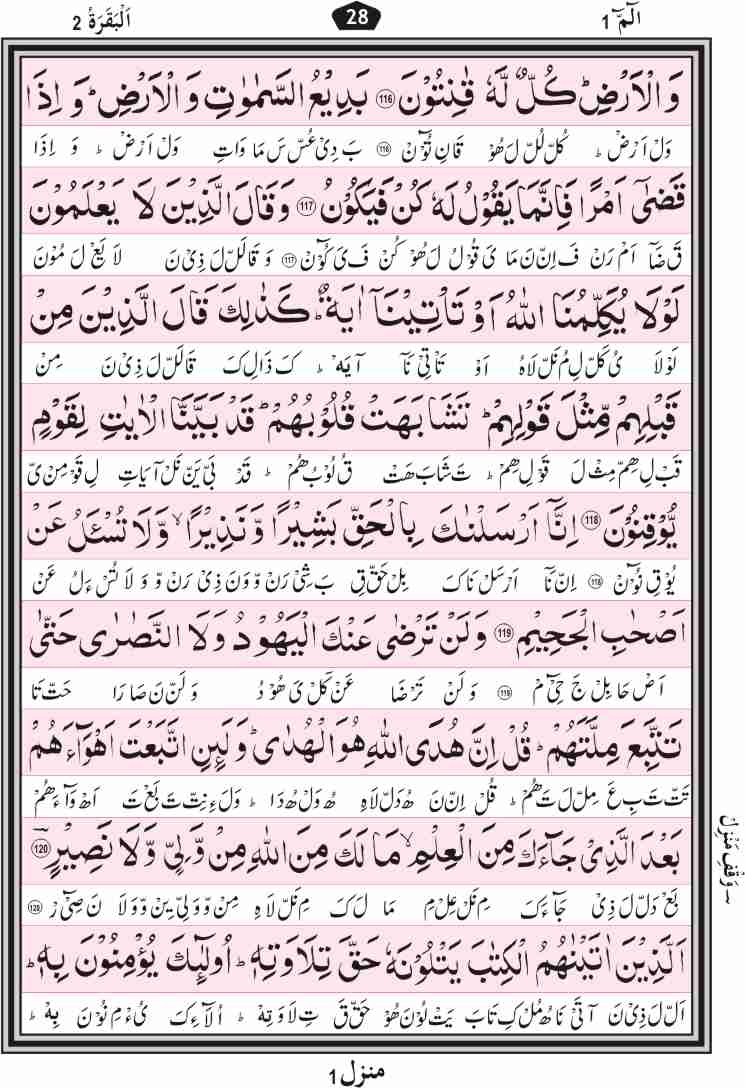 الٓمّٓ 1
28
اَلْبَقَرَةُ 2
وَالْاَرْضِ ؕ كُلٌّ لَّهٗ قٰنِتُوْنَ 116 بَدِيْعُ السَّمٰوٰتِ وَالْاَرْضِ ؕ وَ اِذَا
وَلْ اَرْضْ ؕ كُلْ لُلْ لَ هُوْ قَانِ تُوْٓنْ 116 بَ دِیْ عُسْ سَ مَا وَاتِ وَلْ اَرْضْ ؕ وَ اِذَا
قَضٰۤى اَمْرًا فَاِنَّمَا يَقُوْلُ لَهٗ كُنْ فَيَكُوْنُ 117 وَقَالَ الَّذِيْنَ لَا يَعْلَمُوْنَ
قَ ضَآ اَمْ رَنْ فَ اِنْ نَ مَا یَ قُوْلُ لَ هُوْ كُنْ فَ یَ كُوْٓنْ 117 وَ قَا لَلْ لَ ذِیْ نَ لَا یَعْ لَ مُوْنَ
لَوْلَا يُكَلِّمُنَا اللّٰهُ اَوْ تَاْتِيْنَاۤ اٰيَةٌ ؕ كَذٰلِكَ قَالَ الَّذِيْنَ مِنْ
لَوْ لَا یُ كَلْ لِ مُ نَلْ لَاهُ اَوْ تَاْ تِیْ نَآ آ یَهْ ؕ كَ ذَالِ كَ قَا لَلْ لَ ذِیْ نَ مِنْ
قَبْلِهِمْ مِّثْلَ قَوْلِهِمْ ؕ تَشَابَهَتْ قُلُوْبُهُمْ ؕ قَدْ بَيَّنَّا الْاٰيٰتِ لِقَوْمٍ
قَبْ لِ هِمْ مِثْ لَ قَوْ لِ هِمْ ؕ تَ شَا بَ هَتْ قُ لُوْ بُ هُمْ ؕ قَدْ بَیْ یَنْ نَلْ آ یَاتِ لِ قَوْ مِنْ یْ
يُّوْقِنُوْنَ 118 اِنَّاۤ اَرْسَلْنٰكَ بِالْحَقِّ بَشِيْرًا وَّنَذِيْرًا ۙ وَّلَا تُسْـَٔلُ عَنْ
یُوْ قِ نُوْٓنْ 118 اِنْ نَآ اَرْ سَلْ نَاكَ بِلْ حَقْ قِ بَ شِیْ رَنْ وْ وَنَ ذِیْ رَنْ وْ وَ لَا تُسْ ءَ لُ عَنْ
اَصْحٰبِ الْجَحِيْمِ 119 وَلَنْ تَرْضٰى عَنْكَ الْيَهُوْدُ وَلَا النَّصٰرٰى حَتّٰى
اَصْ حَا بِلْ جَ حِیْٓمْ 119 وَ لَنْ تَرْ ضَا عَنْ كَلْ یَ هُوْ دُ وَ لَنْ نَ صَا رَا حَتْ تَا
تَتَّبِعَ مِلَّتَهُمْ ؕ قُلْ اِنَّ هُدَى اللّٰهِ هُوَ الْهُدٰى ؕ وَلَىِٕنِ اتَّبَعْتَ اَهْوَآءَهُمْ
تَتْ تَ بِ عَ مِلْ لَ تَ هُمْ ؕ قُلْ اِنْ نَ هُ دَلْ لَاهِ هُ وَلْ هُ دَا ؕ وَلَ ءِ نِتْ تَ بَعْ تَ اَهْ وَآ ءَ هُمْ
بَعْدَ الَّذِيْ جَآءَكَ مِنَ الْعِلْمِ ۙ مَا لَكَ مِنَ اللّٰهِ مِنْ وَّلِيٍّ وَّلَا نَصِيْرٍ 120
بَعْ دَلْ لَ ذِیْ جَآءَ كَ مِ نَلْ عِلْ مِ مَا لَ كَ مِ نَلْ لَاهِ مِنْ وْ وَ لِیْ یِنْ وْ وَ لَا نَ صِیْٓرْ 120
اَلَّذِيْنَ اٰتَيْنٰهُمُ الْكِتٰبَ يَتْلُوْنَهٗ حَقَّ تِلَاوَتِهٖ ؕ اُولٰٓىِٕكَ يُؤْمِنُوْنَ بِهٖ ؕ
اَلْ لَ ذِیْ نَ آ تَیْ نَا هُ مُلْ كِ تَابَ یَتْ لُوْنَ هُوْ حَقْ قَ تِ لَا وَ تِهْ ؕ اُ لَآ ءِ كَ یُ ءْ مِ نُوْنَ بِهْ ؕ
وَقْفِ مَنْزِلْ
منزل 1